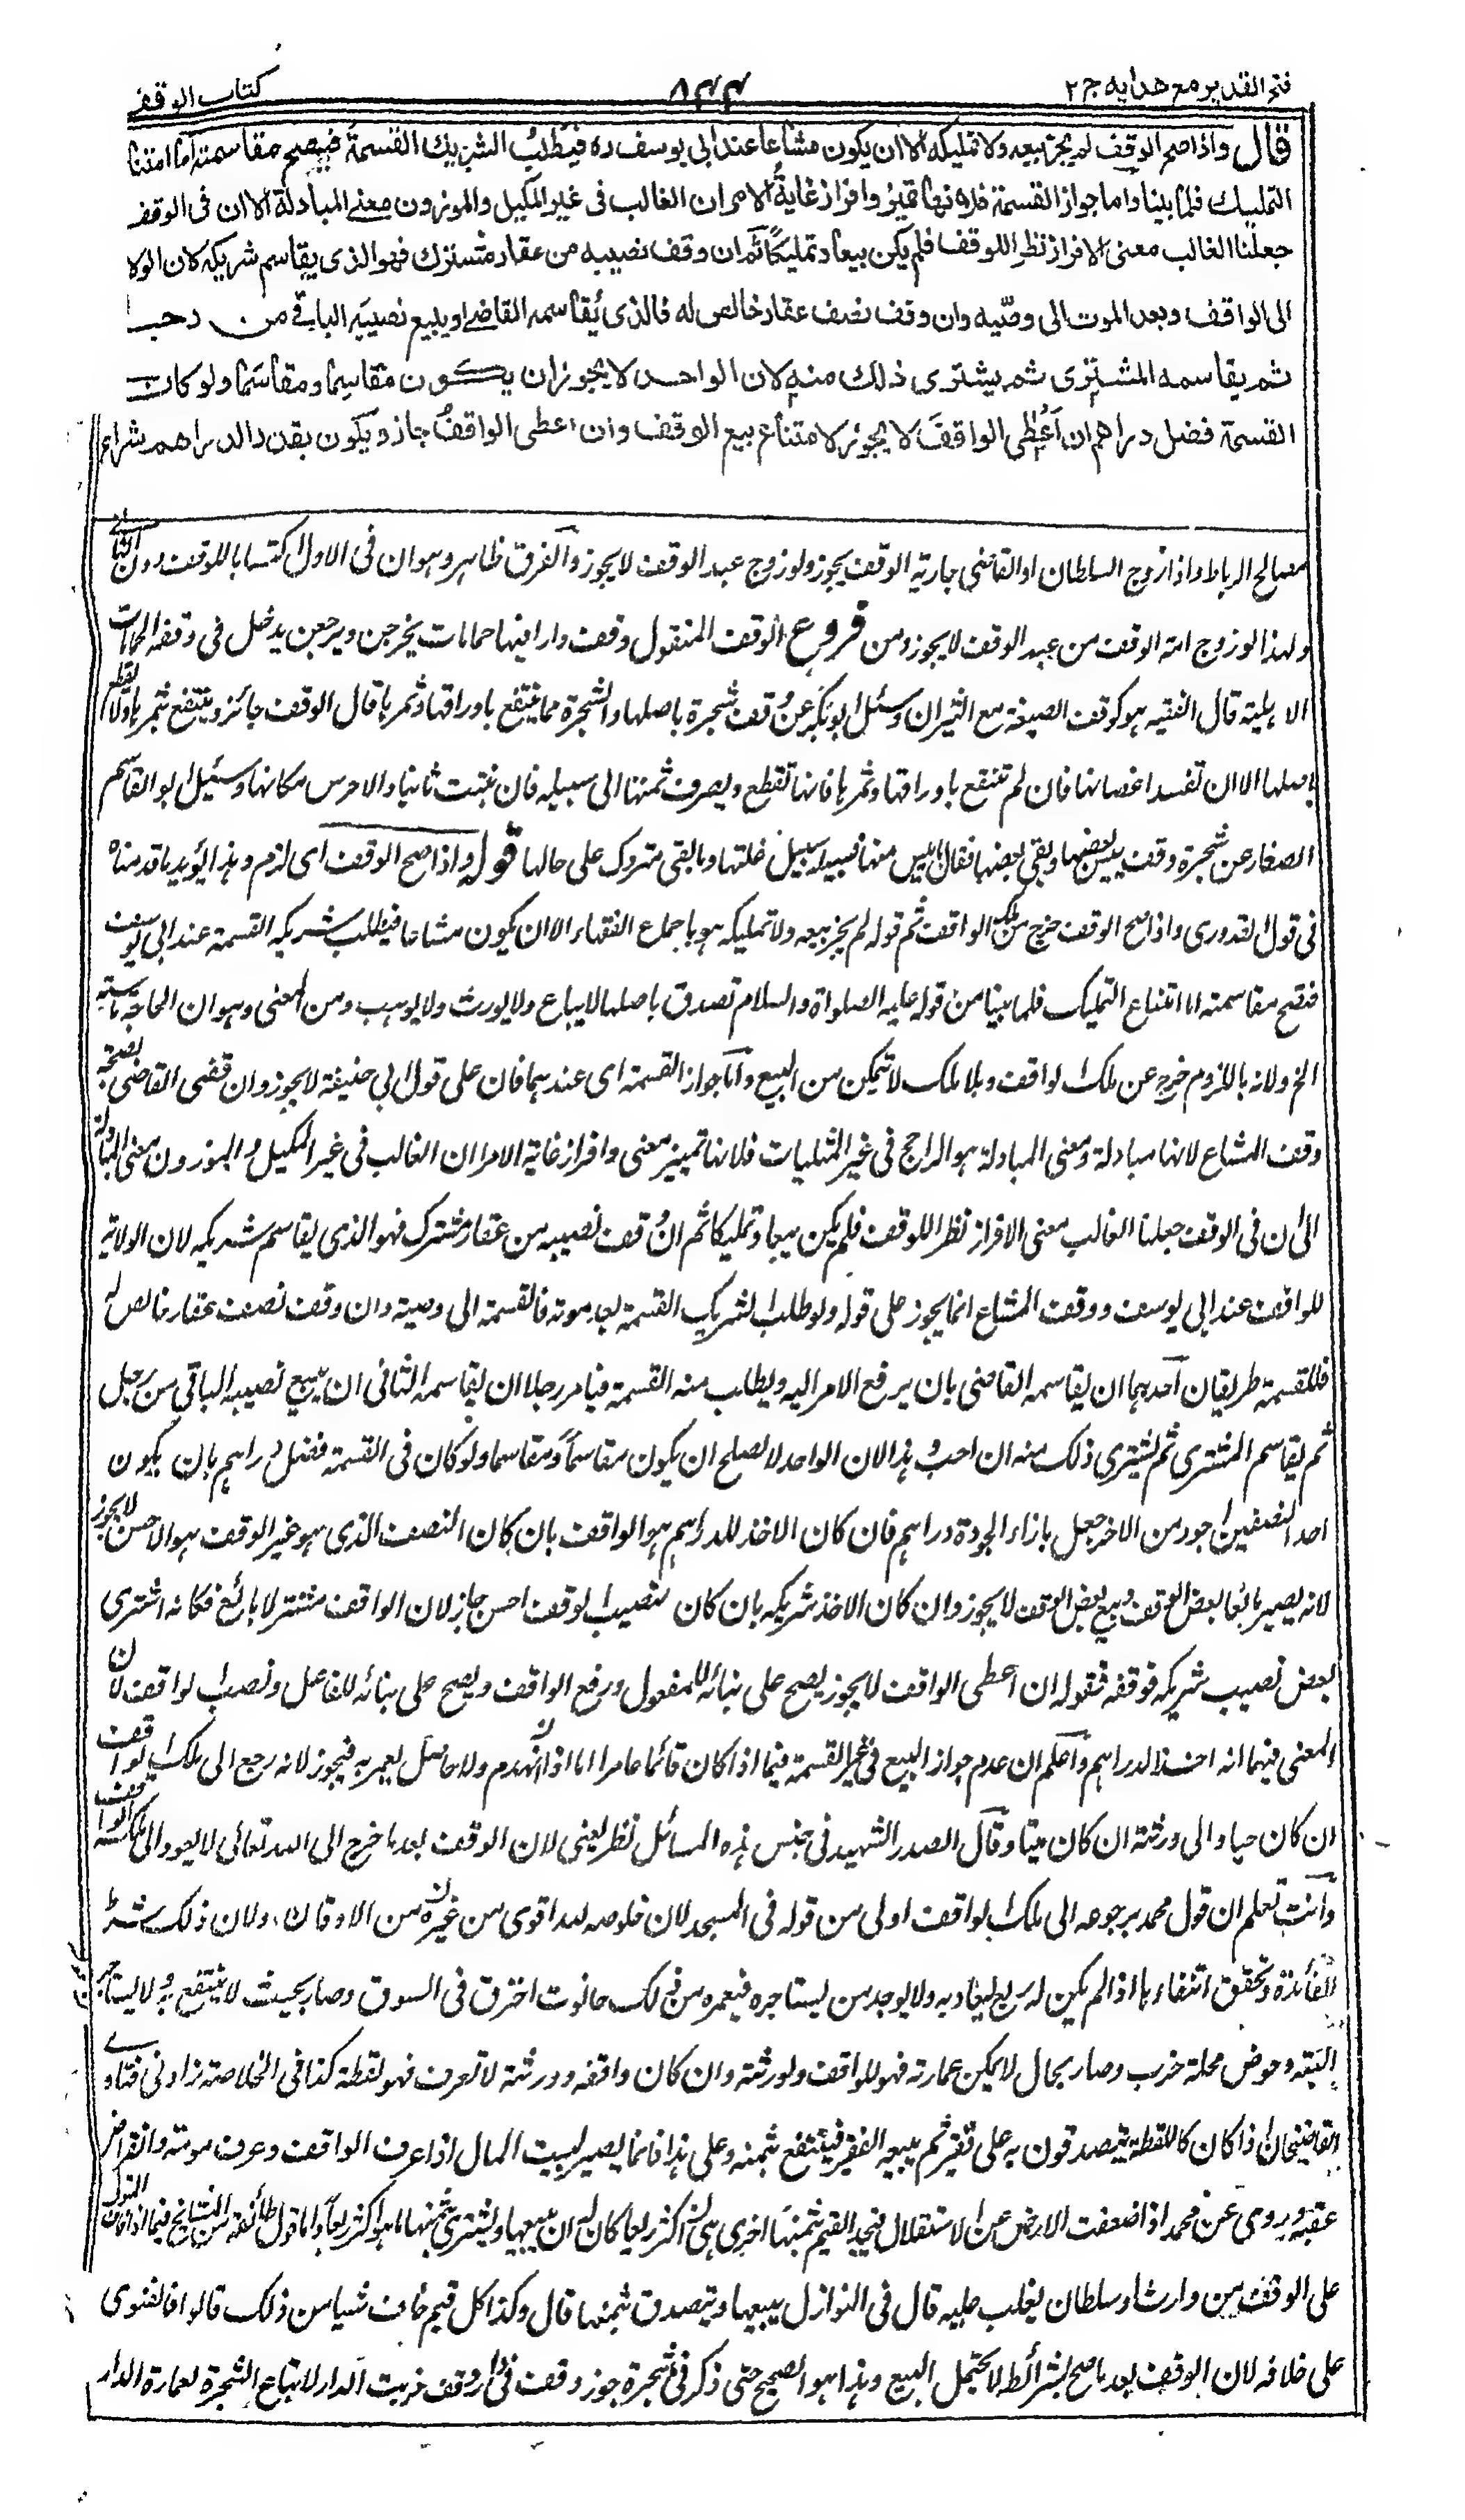 فتح القدير مع هدايه ج ٢
٨٣٣
كتاب الوقف
قال واذا صح الوقف لم يجز بيعه ولا تمليكه الا ان يكون مشاعا عند ابى يوسف ره فيَطلُبُ الشريك القسمةَ فيصح مقاسمته اما امتناع
التمليك فلما بينا واما جواز القسمة فلانها تميز وافراز غايةُ الامر ان الغالب فى غير المكيل والموزون معنى المبادلة الا ان فى الوقف
جعلنا الغالب معنى الافراز نظرا للوقف فلم يكن بيعا وتمليكًا ثم ان وقف نصيبه من عقار مشترك فهو الذى يقاسم شريكه لان الولاية
الى الواقف وبعد الموت الى وصّيه وان وقف نصف عقار خالص له فالذى يُقاسمه القاضى او يبيع نصيبَه الباقى من رجل
ثم يقاسمه المشترى ثم يشترى ذلك منه لان الواحد لا يجوز ان يكون مقاسِما ومقاسَما ولو كان فى
القسمة فضل دراهم ان اُعْطِى الواقفَ لا يجوز لامتناع بيع الوقف وان اعطى الواقفُ جاز ويكون بقدر الدراهم شراء
مصالح الرباط واذا زوج السلطان او القاضى جارية الوقف يجوز ولو زوج عبد الوقف لا يجوز والفرق ظاهر وهو ان فى الاول اكتسابا للوقف دون الثانى
ولهذا لو زوج امة الوقف من عبد الوقف لا يجوز ومن فروع الوقف المنقول وقفت دارا فيها حمامات يخرجن ويرجعن يدخل فى وقفه الحمامات
الاهلية قال الفقيه هو كوقف الضيعة مع الثيران وسئل ابو بكر عن وقف شجرة باصلها والشجرة مما ينتفع باوراقها وثمرها قال الوقف جائز وينتفع بثمرها ولا يقطع
اصلها الا ان تفسد اغصانها فان لم تنتفع باوراقها وثمرها فانها تقطع ويصرف ثمنها الى سبيله فان نبتت ثانيا والا غرس مكانها وسئل ابو القاسم
الصفار عن شجرة وقف يبس بعضها وبقى بعضها فقال ما يبس منها فسبيله سبيل غلتها وما بقى متروك على حالها قوله واذا صح الوقف اى لزم وهذا يؤيد ما قدمناه
فى قول القدورى واذا صح الوقف خرج من ملك الواقف ثم قوله لم يجز بيعه ولا تمليكه هو باجماع الفقهاء الا ان يكون مشاعا فيطلب شريكه القسمة عند ابى يوسف
فتصح مقاسمته اما امتناع التمليك فلما بينا من قوله عليه الصلواة والسلام تصدق باصلها لا يباع ولا يورث ولا يوهب ومن المعنى وهو ان الحاجة ماسة
الخ ولانه باللزوم خرج عن ملك الواقف وبلا ملك لا يتمكن من البيع واما جواز القسمة اى عندهما فان على قول ابى حنيفة لا يجوز وان قضى القاضى بصحة
وقف المشاع لانها مبادلة ومعنى المبادلة هو الراجح فى غير المثليات فلانها تميز معنى وافراز غاية الامر ان الغالب فى غير المكيل والموزون معنى المبادلة
الا ان فى الوقف جعلنا الغالب معنى الافراز نظرا للوقف فلم يكن بيعا وتمليكا ثم ان وقف نصيبه من عقار مشترك فهو الذى يقاسم شريكه لان الولاية
للواقف عند ابى يوسف ووقف المشاع انما يجوز على قوله ولو طلب الشريك القسمة بعد موته فالقسمة الى وصيه وان وقف نصف عقار خالص له
فللقسمة طريقان احدهما ان يقاسمه القاضى بان يرفع الامر اليه ويطلب منه القسمة فيامر رجلا ان يقاسمه الثانى ان يبيع نصيبه الباقى من رجل
ثم يقاسم المشترى ثم يشترى ذلك منه ان احب وهذا لان الواحد لا يصلح ان يكون مقاسماً ومقاسما ولو كان فى القسمة فضل دراهم بان يكون
احد النصفين اجود من الاخر جعل بازاء الجودة دراهم فان كان الاخذ للدراهم هو الواقف بان كان النصف الذى هو غير الوقف هو الاحسن لا يجوز
لانه يصير بائعا بعض الوقف وبيع بعض الوقف لا يجوز وان كان الاخذ شريكه بان كان نصيب الوقف احسن جاز لان الواقف مشتر لا بائع فكانه اشترى
بعض نصيب شريكه فوقفه فقوله ان اعطى الواقف لا يجوز يصح على بنائه للمفعول ورفع الواقف ويصح على بنائه للفاعل ونصب الواقف لان
المعنى فيهما انه اخذ الدراهم واعلم ان عدم جواز البيع فى غير القسمة فيما اذا كان قائما عامرا اما اذا انهدم ولا حاصل يعمر به فيجوز لانه رجع الى ملك الواقف
ان كان حيا والى ورثته ان كان ميتا وقال الصدر الشهيد فى جنس هذه المسائل نظر يعنى لان الوقف بعد ما خرج الى الله تعالى لا يعود الى ملك الواقف
وانت تعلم ان قول محمد برجوعه الى ملك الواقف اولى من قوله فى المسجد لان خلوصه لله اقوى من غيره من الاوقاف ولان ذلك شرط
الفائدة وتحقق انتفاءها اذا لم يكن له ريع يعاد به ولا يوجد من يستاجره فيعمره من ذلك حانوت احترق فى السوق وصار بحيث لا ينتفع به ولا يستاجر
البتة وحوض محلة خرب وصار بحال لا يمكن عمارته فهو للواقف ولورثته وان كان واقفه وورثته لا تعرف فهو لقطة كذا فى الخلاصة زاد فى فتاوى
القاضيخان اذا كان كاللقطة يتصدقون به على فقير ثم يبيعه الفقير فينتفع بثمنه وعلى هذا فانما يصير لبيت المال اذا عرف الواقف وعرف موته وانقراض
عقبه وروى عن محمد اذا ضعفت الارض عن الاستغلال فيجد القيم بثمنها اخرى هى اكثر ريعا كان له ان يبيعها ويشترى بثمنها ما هو اكثر ريعا واما قول طائفة من المشايخ فيما اذا خاف المتولى
على الوقف من وارث او سلطان يغلب عليه قال فى النوازل يبيعها ويتصدق بثمنها قال وكذا كل قيم خاف شيا من ذلك قالوا فالفتوى
على خلافه لان الوقف بعد ما صح بشرائطه لا يحتمل البيع وهذا هو الصحيح حتى ذكر فى شجرة جوز وقف فى دار وقف خربت الدار لا تباع الشجرة لعمارة الدار